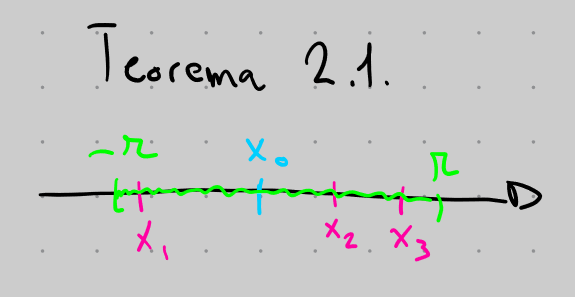 Teorema 2.1.
-r x₀ r
x₁ x₂ x₃